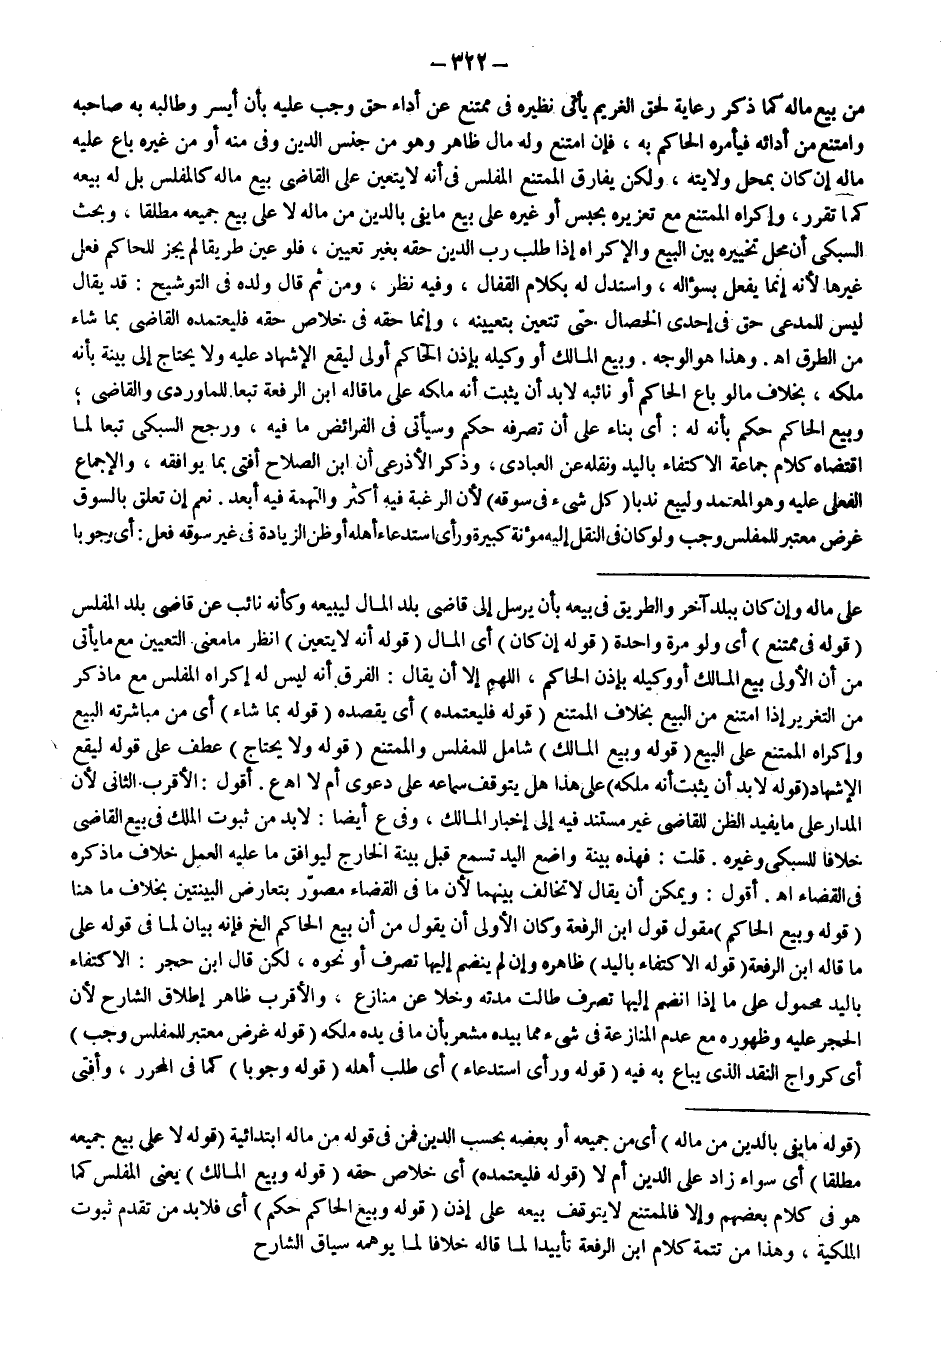 - ٣٢٢ -
من بيع ماله كما ذكر رعاية لحق الغريم يأتى نظيره فى ممتنع عن أداء حق وجب عليه بأن أيسر وطالبه به صاحبه
وامتنع من أدائه فيأمره الحاكم به ، فإن امتنع وله مال ظاهر وهو من جنس الدين وفى منه أو من غيره باع عليه
ماله إن كان بمحل ولايته ، ولكن يفارق الممتنع المفلس فى أنه لايتعين على القاضى بيع ماله كالمفلس بل له بيعه
كما تقرر ، وإكراه الممتنع مع تعزيره بحبس أو غيره على بيع مايفى بالدين من ماله لا على بيع جميعه مطلقا ، وبحث
السبكى أن محل تخييره بين البيع والإكراه إذا طلب رب الدين حقه بغير تعيين ، فلو عين طريقا لم يجز للحاكم فعل
غيرها لأنه إنما يفعل بسؤاله ، واستدل له بكلام القفال ، وفيه نظر ، ومن ثم قال ولده فى التوشيح : قد يقال
ليس للمدعى حق فى إحدى الخصال حتى تتعين بتعيينه ، وإنما حقه فى خلاص حقه فليعتمده القاضى بما شاء
من الطرق اهـ . وهذا هو الوجه . وبيع المالك أو وكيله بإذن الحاكم أولى ليقع الإشهاد عليه ولا يحتاج إلى بينة بأنه
ملكه ، بخلاف مالو باع الحاكم أو نائبه لابد أن يثبت أنه ملكه على ماقاله ابن الرفعة تبعا للماوردى والقاضى ؛
وبيع الحاكم حكم بأنه له : أى بناء على أن تصرفه حكم وسيأتى فى الفرائض ما فيه ، ورجح السبكى تبعا لما
اقتضاه كلام جماعة الاكتفاء باليد ونقله عن العبادى ، وذكر الأذرعى أن ابن الصلاح أفتى بما يوافقه ، والإجماع
الفعلى عليه وهو المعتمد وليبع ندبا ( كل شىء فى سوقه ) لأن الرغبة فيه أكثر والتهمة فيه أبعد . نعم إن تعلق بالسوق
غرض معتبر للمفلس وجب ولو كان فى النقل إليه مؤنة كبيرة ورأى استدعاء أهله أو ظن الزيادة فى غير سوقه فعل : أى وجوبا
على ماله وإن كان ببلد آخر والطريق فى بيعه بأن يرسل إلى قاضى بلد المال ليبيعه وكأنه نائب عن قاضى بلد المفلس
( قوله فى ممتنع ) أى ولو مرة واحدة ( قوله إن كان ) أى المال ( قوله أنه لايتعين ) انظر مامعنى التعيين مع مايأتى
من أن الأولى بيع المالك أو وكيله بإذن الحاكم ، اللهم إلا أن يقال : الفرق أنه ليس له إكراه المفلس مع ماذكر
من التغرير إذا امتنع من البيع بخلاف الممتنع ( قوله فليعتمده ) أى يقصده ( قوله بما شاء ) أى من مباشرته البيع
وإكراه الممتنع على البيع ( قوله وبيع المالك ) شامل للمفلس والممتنع ( قوله ولا يحتاج ) عطف على قوله ليقع
الإشهاد ( قوله لابد أن يثبت أنه ملكه ) على هذا هل يتوقف سماعه على دعوى أم لا اهع . أقول : الأقرب الثانى لأن
المدار على مايفيد الظن للقاضى غير مستند فيه إلى إخبار المالك ، وفى ع أيضا : لابد من ثبوت الملك فى بيع القاضى
خلافا للسبكى وغيره . قلت : فهذه بينة واضع اليد تسمع قبل بينة الخارج ليوافق ما عليه العمل خلاف ماذكره
فى القضاء اهـ . أقول : ويمكن أن يقال لاتخالف بينهما لأن ما فى القضاء مصوّر بتعارض البينتين بخلاف ما هنا
( قوله وبيع الحاكم ) مقول قول ابن الرفعة وكان الأولى أن يقول من أن بيع الحاكم الخ فإنه بيان لما فى قوله على
ما قاله ابن الرفعة ( قوله الاكتفاء باليد ) ظاهره وإن لم ينضم إليها تصرف أو نحوه ، لكن قال ابن حجر : الاكتفاء
باليد محمول على ما إذا انضم إليها تصرف طالت مدته وخلا عن منازع ، والأقرب ظاهر إطلاق الشارح لأن
الحجر عليه وظهوره مع عدم المنازعة فى شىء مما بيده مشعر بأن ما فى يده ملكه ( قوله غرض معتبر للمفلس وجب )
أى كرواج النقد الذى يباع به فيه ( قوله ورأى استدعاء ) أى طلب أهله ( قوله وجوبا ) كما فى المحرر ، وأفتى
( قوله مايفى بالدين من ماله ) أى من جميعه أو بعضه بحسب الدين فمن فى قوله من ماله ابتدائية ( قوله لا على بيع جميعه
مطلقا ) أى سواء زاد على الدين أم لا ( قوله فليعتمده ) أى خلاص حقه ( قوله وبيع المالك ) يعنى المفلس كما
هو فى كلام بعضهم وإلا فالممتنع لايتوقف بيعه على إذن ( قوله وبيع الحاكم حكم ) أى فلابد من تقدم ثبوت
الملكية ، وهذا من تتمة كلام ابن الرفعة تأييدا لما قاله خلافا لما يوهمه سياق الشارح